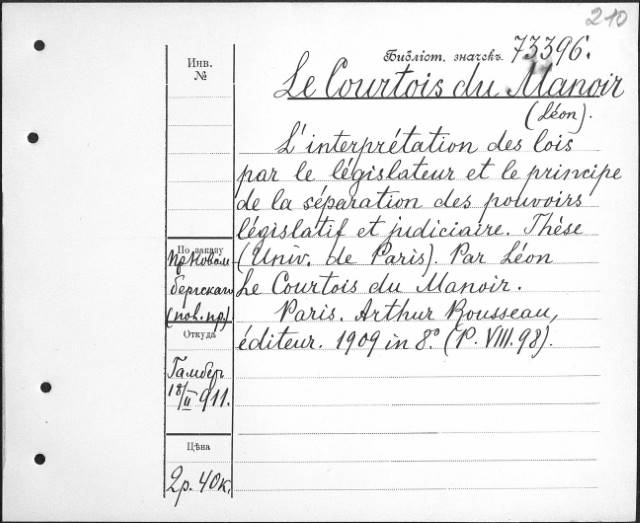 210
Библіот. значекъ 73396.
Инв.
№
Le Courtois du Manoir
(Léon).
L'interprétation des lois
par le législateur et le principe
de la séparation des pouvoirs
législatif et judiciaire. Thèse
(Univ. de Paris). Par Léon
Le Courtois du Manoir.
Paris. Arthur Rousseau,
éditeur. 1909 in 8° (P. VIII. 98).
По заказу
пр Новом
бергскаго
(пов. пр.)
Откуда
Гамбер
18/II 911.
Цѣна
2р. 40к.